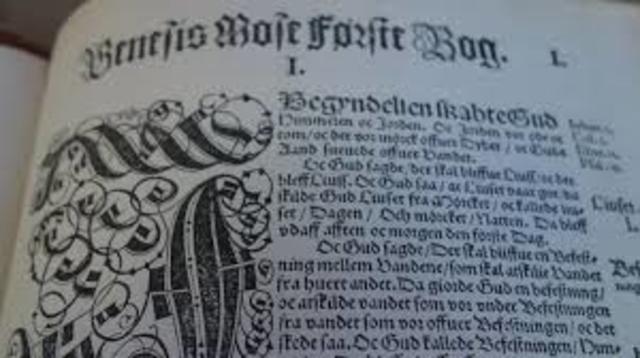 Genesis Mose Første Bog. I.
I.
Begyndelsen skabte Gud
Himmelen oc Jorden. Oc Jorden vor øde oc
tom/ oc der vor mørckt offuer Dybet / oc Guds
Aand sueuede offuer Vandet.
Oc Gud sagde/ der skal bliffue Liuss/ oc der
bleff Liuss. Oc Gud saa / at Liuset vaar got/ da
skilde Gud Liuset fra Mørcket / oc kallede Liu-
set / Dagen / Och mørcket / Natten. Da bleff
vdaff afften oc morgen den første Dag.
Oc Gud sagde/ Der skal bliffue en Befest-
ning mellem Vandene/ som skal atskilie Vandet
fra huert andet. Da giorde Gud en befestning/
oc atskilde vandet som vor vnder Befestningen
fra vandet som vor offuer Befestningen/ oc det
skede saa. Oc Gud kallede Befestningen / Him-